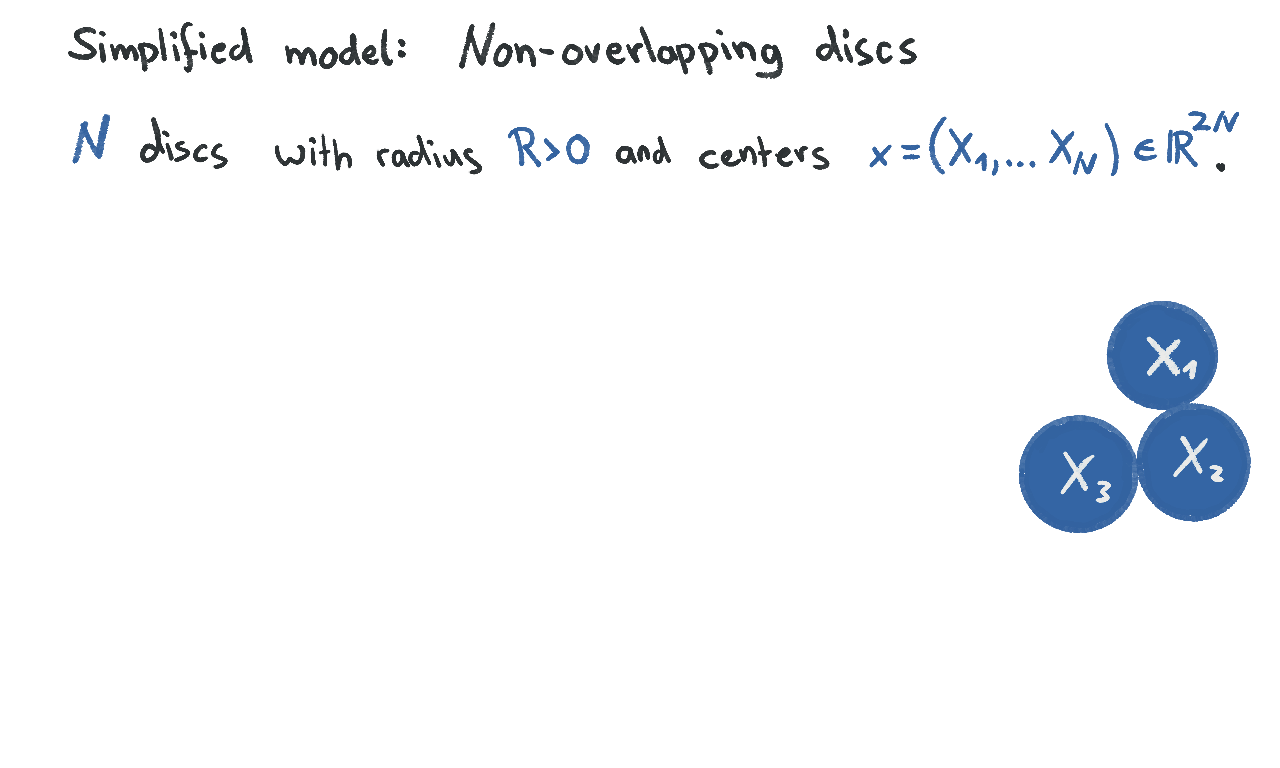 Simplified model: Non-overlapping discs
N discs with radius R>0 and centers x=(X₁,... X_N) ∈ ℝ²ᴺ.
X₁
X₂
X₃